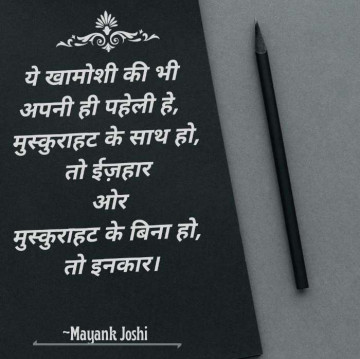 ये खामोशी की भी
अपनी ही पहेली हे,
मुस्कुराहट के साथ हो,
तो ईज़हार
ओर
मुस्कुराहट के बिना हो,
तो इनकार।
~Mayank Joshi